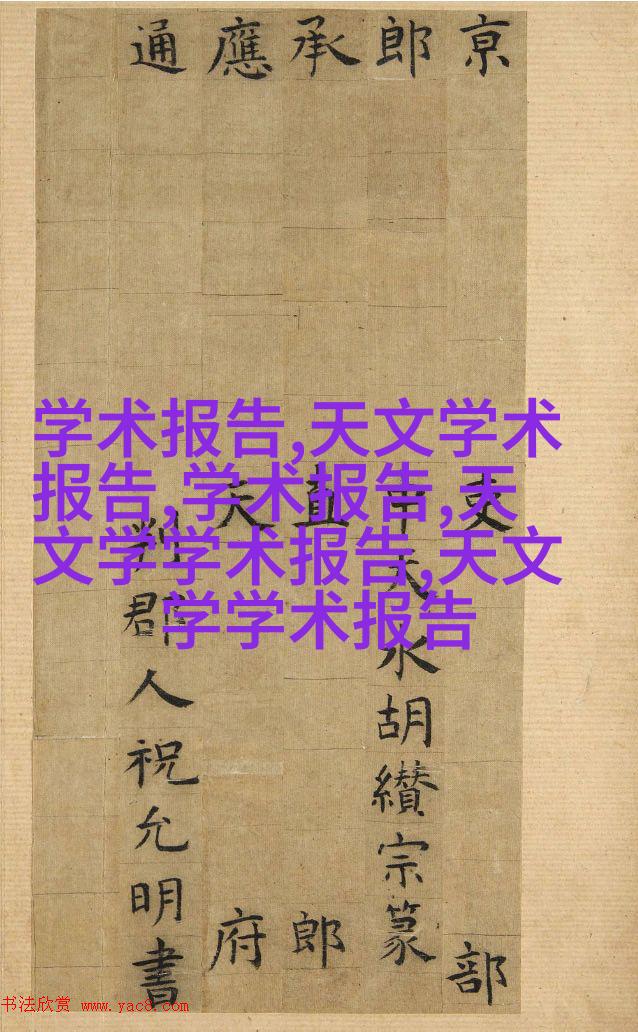 京吏部
郎中天水胡纘宗篆
承直郎
應天府
通判郡人祝允明書
学术报告,天文学术
报告,学术报告,天
文学学术报告,天文
学学术报告
书法欣赏 www.yac8.com